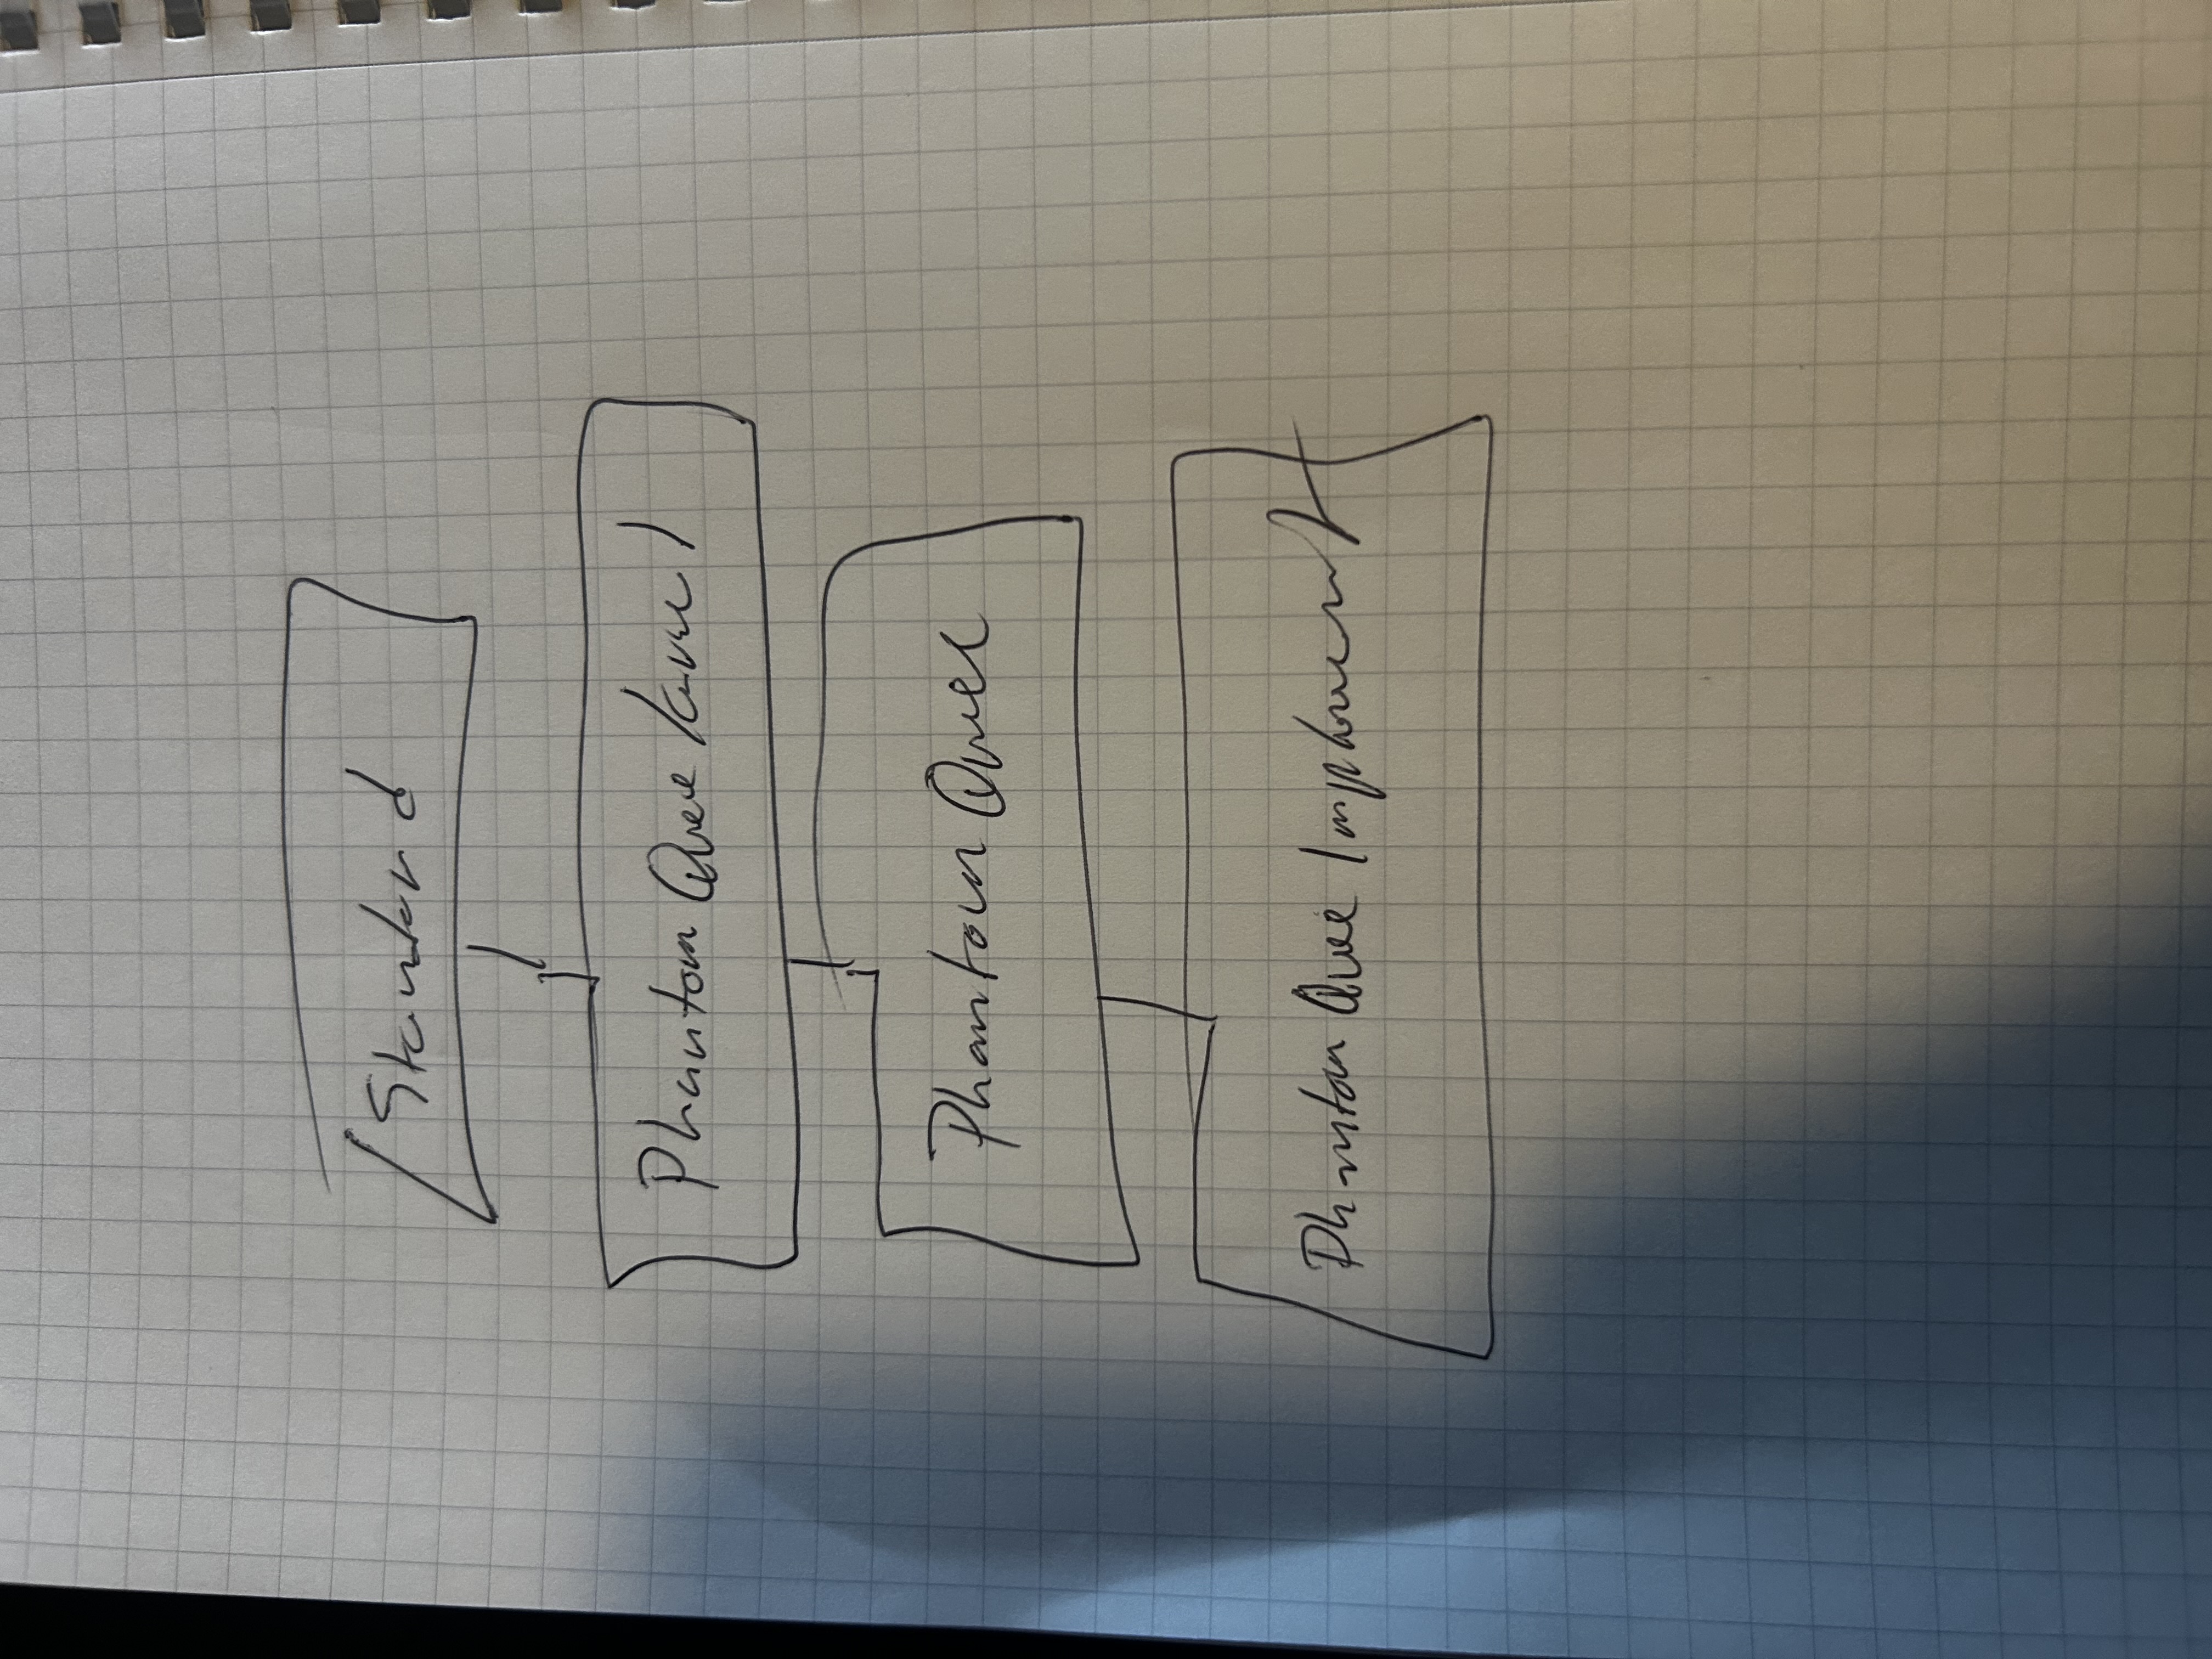 Standard
Phantom Quee
Phantom Quee
Phantom Quee Implement